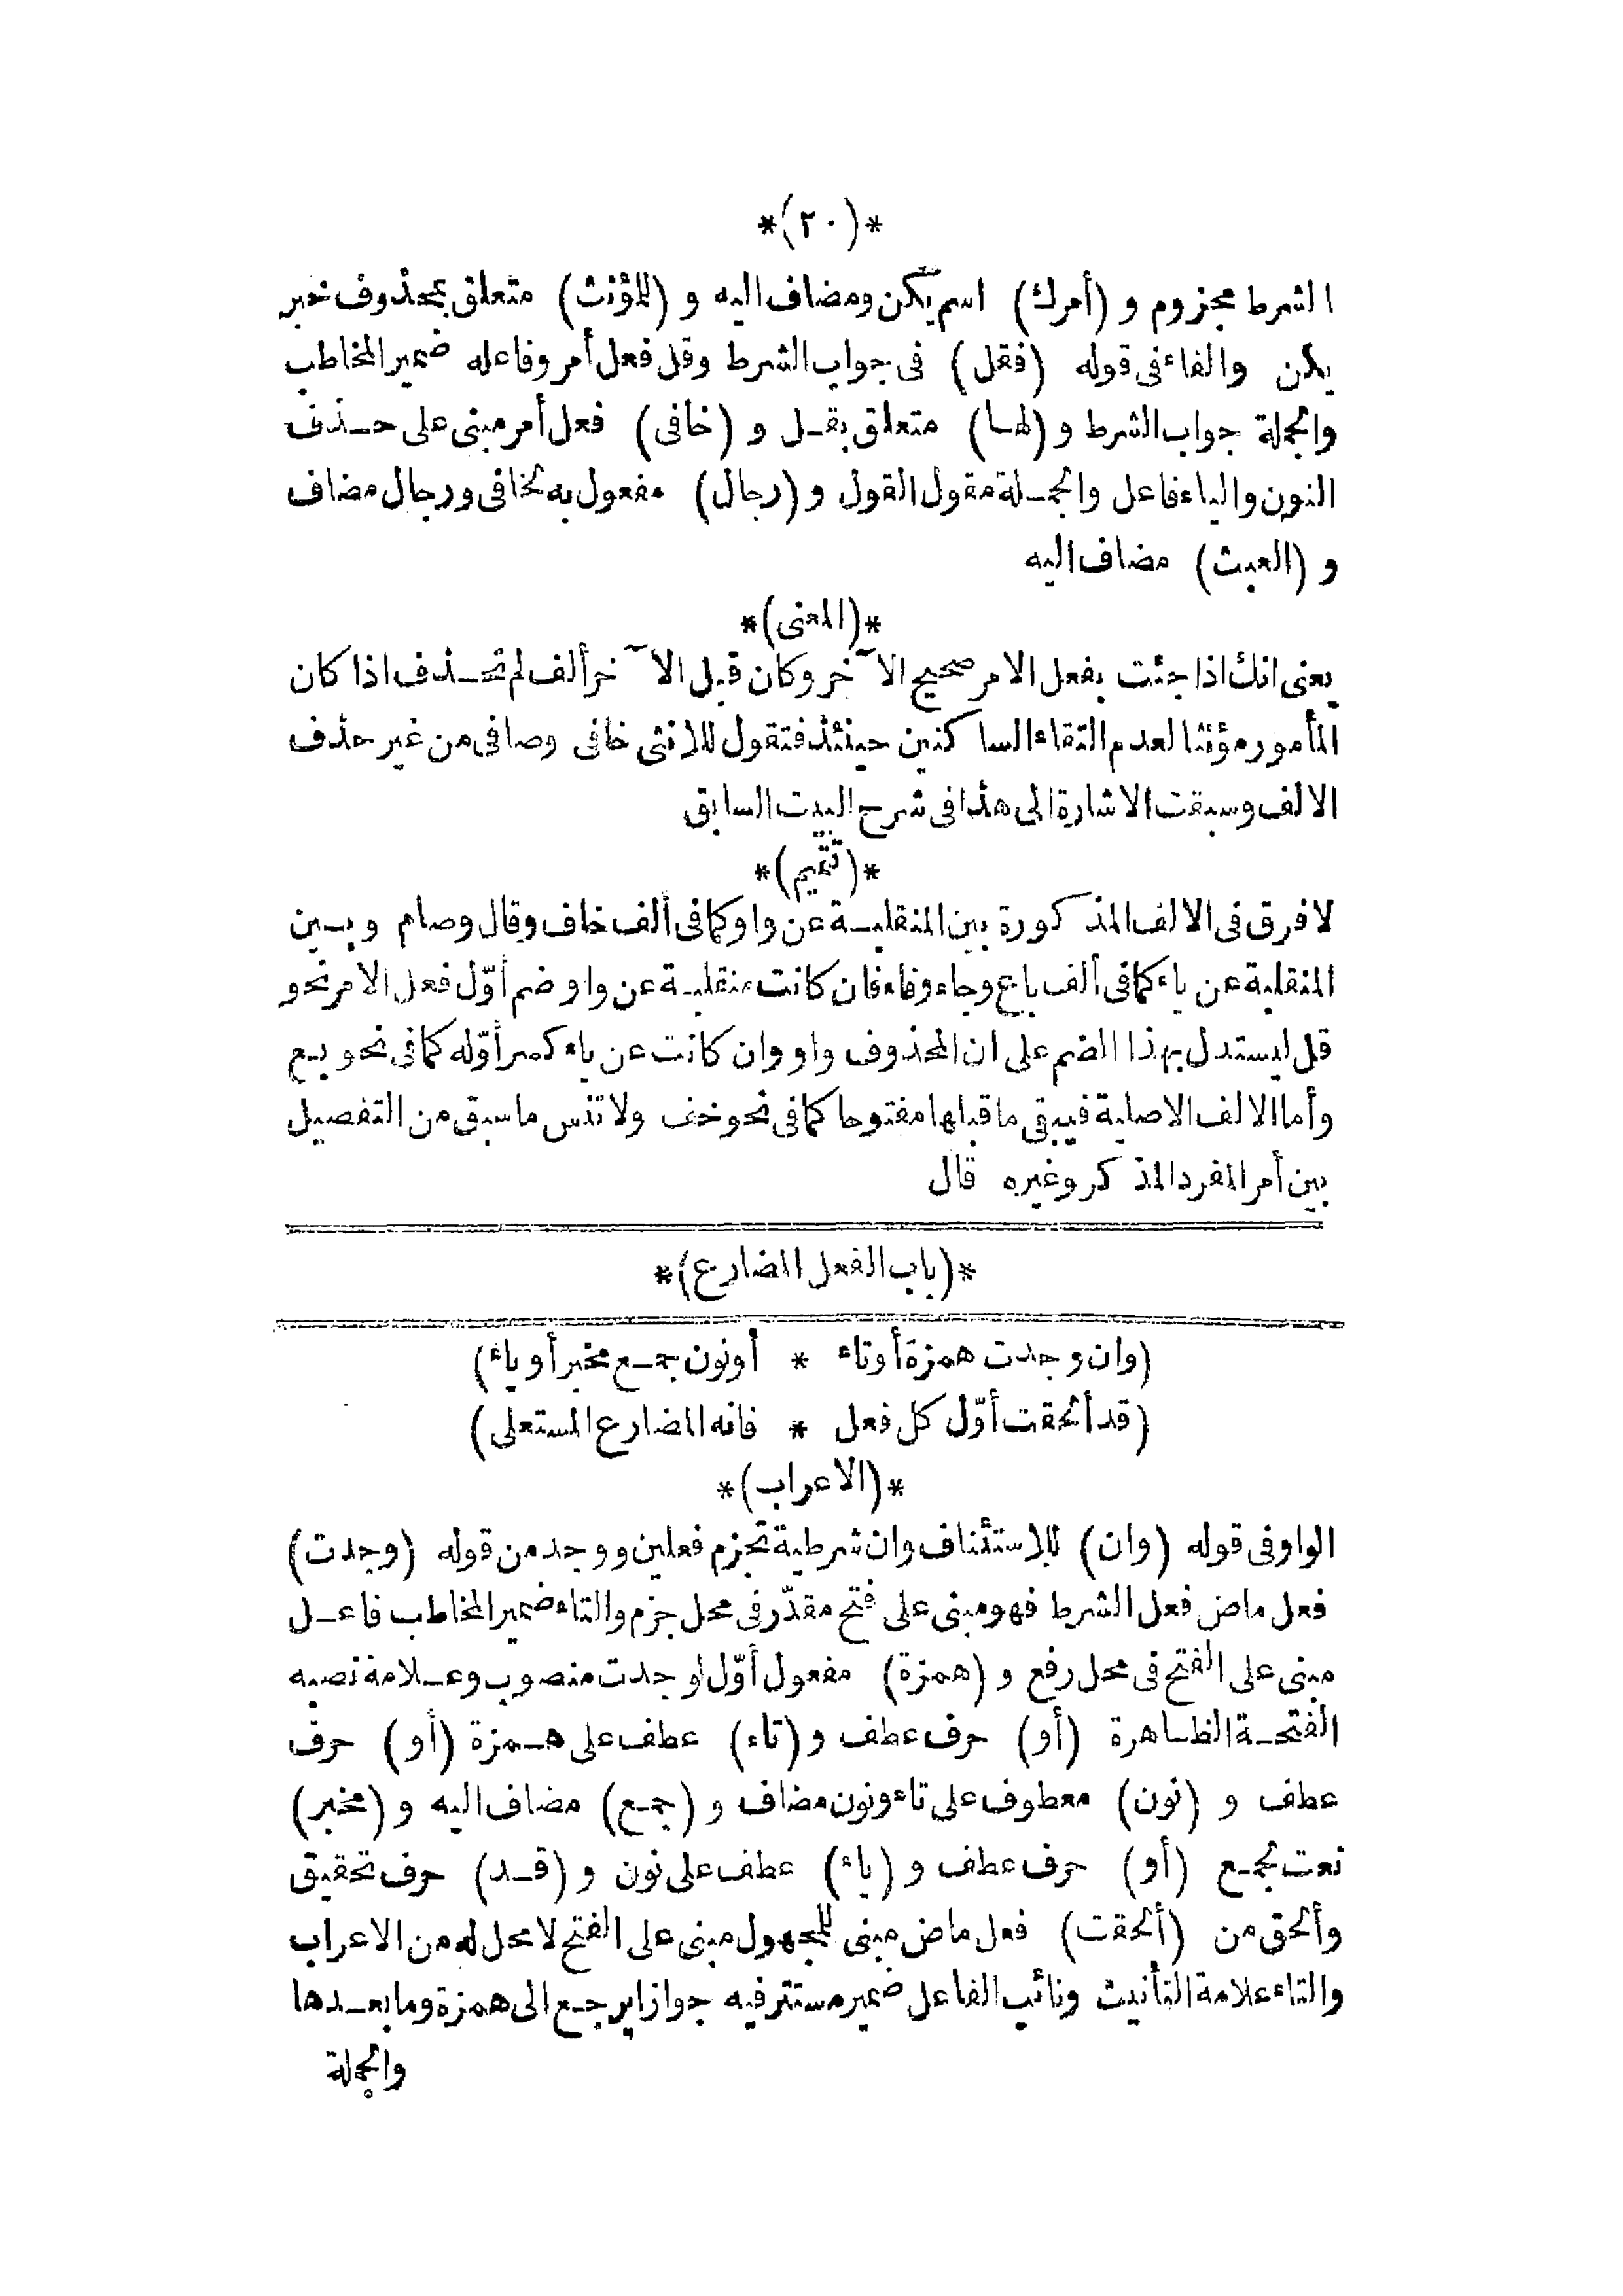 *(٢٠)*
الشرط مجزوم و (أمرك) اسم يكن ومضاف اليه و (للمؤنث) متعلق بمحذوف خبر
يكن والفاء فى قوله (فقل) فى جواب الشرط وقل فعل أمر وفاعله ضمير المخاطب
والجملة جواب الشرط و (لها) متعلق بقل و (خافى) فعل أمر مبنى على حذف
النون والياء فاعل والجملة مقول القول و (رجال) مفعول به لخافى ورجال مضاف
و (العبث) مضاف اليه
*(المعنى)*
يعنى انك اذا جئت بفعل الامر صحيح الآخر وكان قبل الآخر ألف لم تحذف اذا كان
المأمور مؤنثا لعدم التقاء الساكنين حينئذ فتقول للانثى خافى وصافى من غير حذف
الالف وسبقت الاشارة الى هذا فى شرح البيت السابق
*(تتميم)*
لا فرق فى الالف المذكورة بين المنقلبة عن واو كما فى ألف خاف وقال وصام وبين
المنقلبة عن ياء كما فى ألف باع وجاء وفاء فان كانت منقلبة عن واو ضم أوّل فعل الامر نحو
قل ليستدل بهذا الضم على ان المحذوف واو وان كانت عن ياء كسر أوّله كما فى نحو بع
وأما الالف الاصلية فيبقى ما قبلها مفتوحا كما فى نحو خف ولا تنس ما سبق من التفصيل
بين أمر المفرد المذكر وغيره قال
*(باب الفعل المضارع)*
(وان وجدت همزة أو تاء * أو نون جمع مخبر أو ياء)
(قد ألحقت أوّل كل فعل * فانه المضارع المستعلى)
*(الاعراب)*
الواو فى قوله (وان) للاستئناف وان شرطية تجزم فعلين ووجد من قوله (وجدت)
فعل ماض فعل الشرط فهو مبنى على فتح مقدّر فى محل جزم والتاء ضمير المخاطب فاعل
مبنى على الفتح فى محل رفع و (همزة) مفعول أوّل لوجدت منصوب وعلامة نصبه
الفتحة الظاهرة (أو) حرف عطف و (تاء) عطف على همزة (أو) حرف
عطف و (نون) معطوف على تاء ونون مضاف و (جمع) مضاف اليه و (مخبر)
نعت لجمع (أو) حرف عطف و (ياء) عطف على نون و (قد) حرف تحقيق
وألحق من (ألحقت) فعل ماض مبنى للمجهول مبنى على الفتح لا محل له من الاعراب
والتاء علامة التأنيث ونائب الفاعل ضمير مستتر فيه جوازا يرجع الى همزة وما بعدها
والجملة